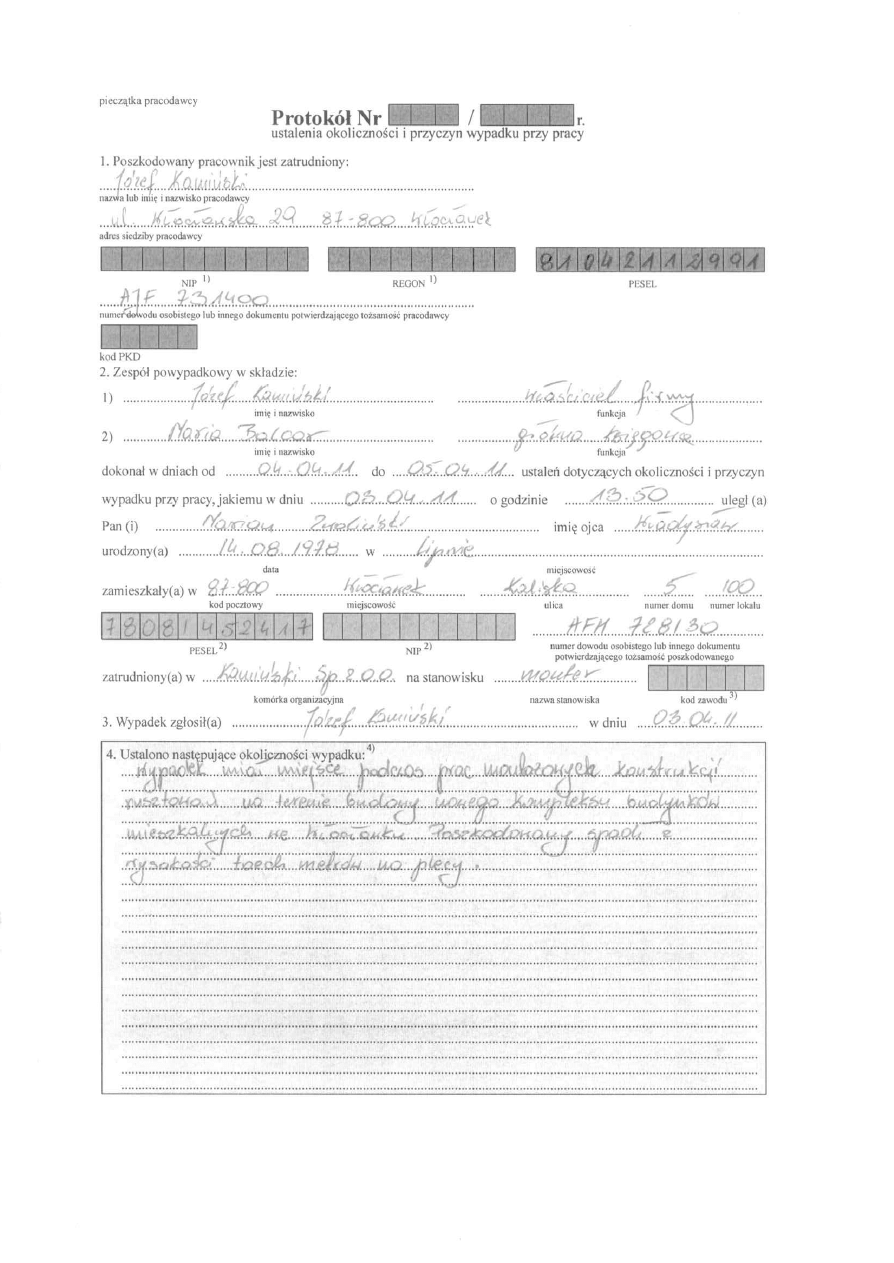 pieczątka pracodawcy
Protokół Nr / r.
ustalenia okoliczności i przyczyn wypadku przy pracy
1. Poszkodowany pracownik jest zatrudniony:
Józef Kamiński
nazwa lub imię i nazwisko pracodawcy
ul. Włocławska 29 87-800 Włocławek
adres siedziby pracodawcy
81042112991
NIP 1) REGON 1) PESEL
AJF 731400
numer dowodu osobistego lub innego dokumentu potwierdzającego tożsamość pracodawcy
kod PKD
2. Zespół powypadkowy w składzie:
1) Józef Kamiński właściciel firmy
imię i nazwisko funkcja
2) Maria Balcar główna księgowa
imię i nazwisko funkcja
dokonał w dniach od 04.04.11 do 05.04.11 ustaleń dotyczących okoliczności i przyczyn
wypadku przy pracy, jakiemu w dniu 03.04.11 o godzinie 13.50 uległ (a)
Pan (i) Marian Zwoliński imię ojca Władysław
urodzony(a) 14.08.1978 w Lipnie
data miejscowość
zamieszkały(a) w 87-800 Włocławek Kaliska 5 100
kod pocztowy miejscowość ulica numer domu numer lokalu
78081452417 AFM 728130
PESEL 2) NIP 2) numer dowodu osobistego lub innego dokumentu
potwierdzającego tożsamość poszkodowanego
zatrudniony(a) w Kamiński Sp z o.o. na stanowisku monter
komórka organizacyjna nazwa stanowiska kod zawodu 3)
3. Wypadek zgłosił(a) Józef Kamiński w dniu 03.04.11
4. Ustalono następujące okoliczności wypadku: 4)
Wypadek miał miejsce podczas prac montażowych konstrukcji
rusztowań na terenie budowy nowego kompleksu budynków
mieszkalnych we Włocławku. Poszkodowany spadł z
wysokości trzech metrów na plecy.